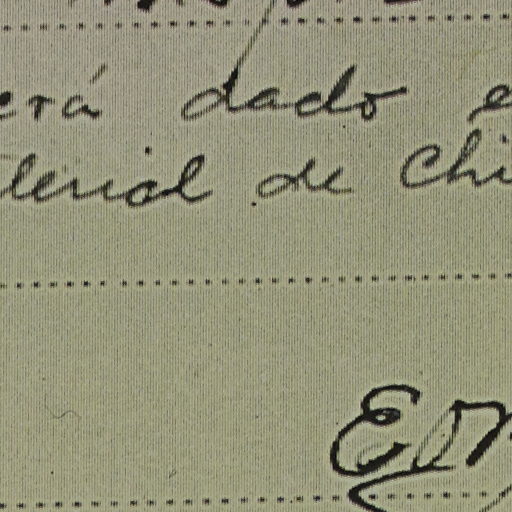 erá dado e
terial de Chi